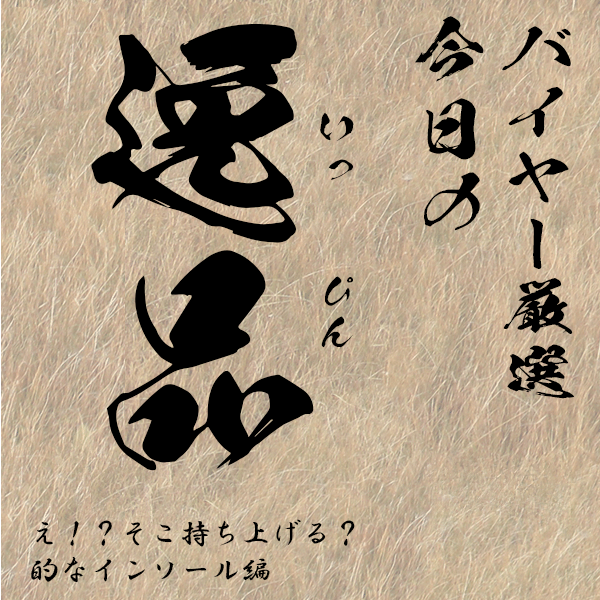 バイヤー厳選
今日の
逸品
いっぴん
え！？そこ持ち上げる？
的なインソール編